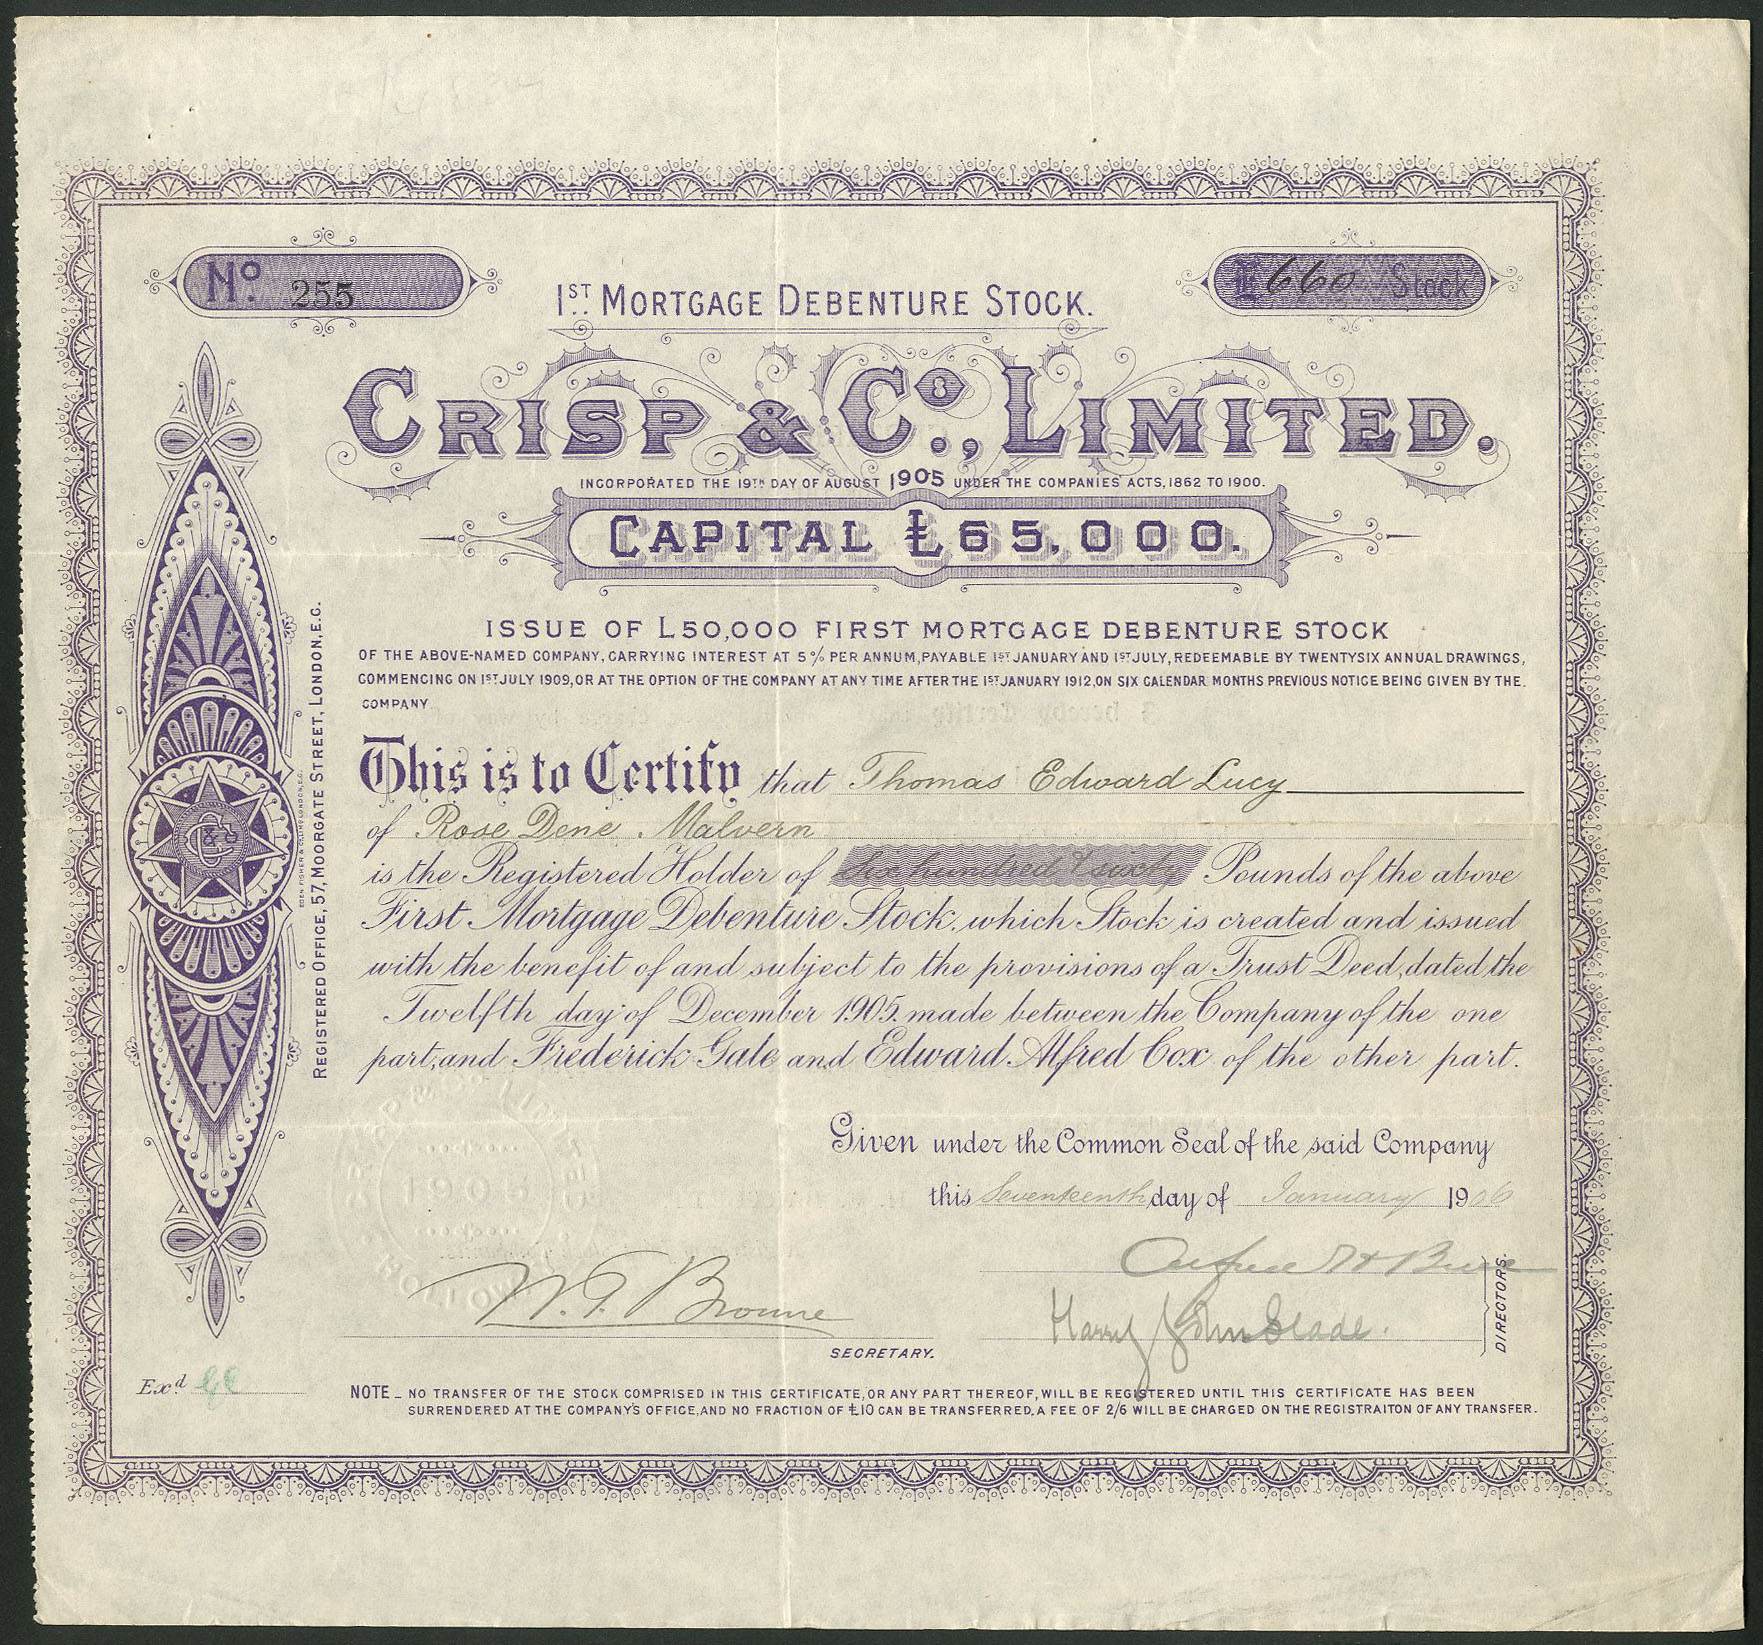 No. 255
£660 Stock
1ST MORTGAGE DEBENTURE STOCK.
CRISP & Co., LIMITED.
INCORPORATED THE 19TH DAY OF AUGUST 1905 UNDER THE COMPANIES' ACTS, 1862 TO 1900.
CAPITAL £65,000.
ISSUE OF L50,000 FIRST MORTGAGE DEBENTURE STOCK
OF THE ABOVE-NAMED COMPANY, CARRYING INTEREST AT 5% PER ANNUM, PAYABLE 1ST JANUARY AND 1ST JULY, REDEEMABLE BY TWENTYSIX ANNUAL DRAWINGS,
COMMENCING ON 1ST JULY 1909, OR AT THE OPTION OF THE COMPANY AT ANY TIME AFTER THE 1ST JANUARY 1912, ON SIX CALENDAR MONTHS PREVIOUS NOTICE BEING GIVEN BY THE
COMPANY
This is to Certify that Thomas Edward Lucy
of Rose Dene, Malvern
is the Registered Holder of Six hundred & sixty Pounds of the above
First Mortgage Debenture Stock, which Stock is created and issued
with the benefit of and subject to the provisions of a Trust Deed, dated the
Twelfth day of December 1905, made between the Company of the one
part, and Frederick Gale and Edward Alfred Cox of the other part.
Given under the Common Seal of the said Company
this Seventeenth day of January 1906
W. T. Browne
SECRETARY.
Harry John Slade.
DIRECTORS.
Exd.
NOTE - NO TRANSFER OF THE STOCK COMPRISED IN THIS CERTIFICATE, OR ANY PART THEREOF, WILL BE REGISTERED UNTIL THIS CERTIFICATE HAS BEEN
SURRENDERED AT THE COMPANY'S OFFICE, AND NO FRACTION OF £10 CAN BE TRANSFERRED. A FEE OF 2/6 WILL BE CHARGED ON THE REGISTRAITON OF ANY TRANSFER.
REGISTERED OFFICE, 57, MOORGATE STREET, LONDON, E.C.
EDEN FISHER & CO LIMD LONDON, E.C.
C & Co